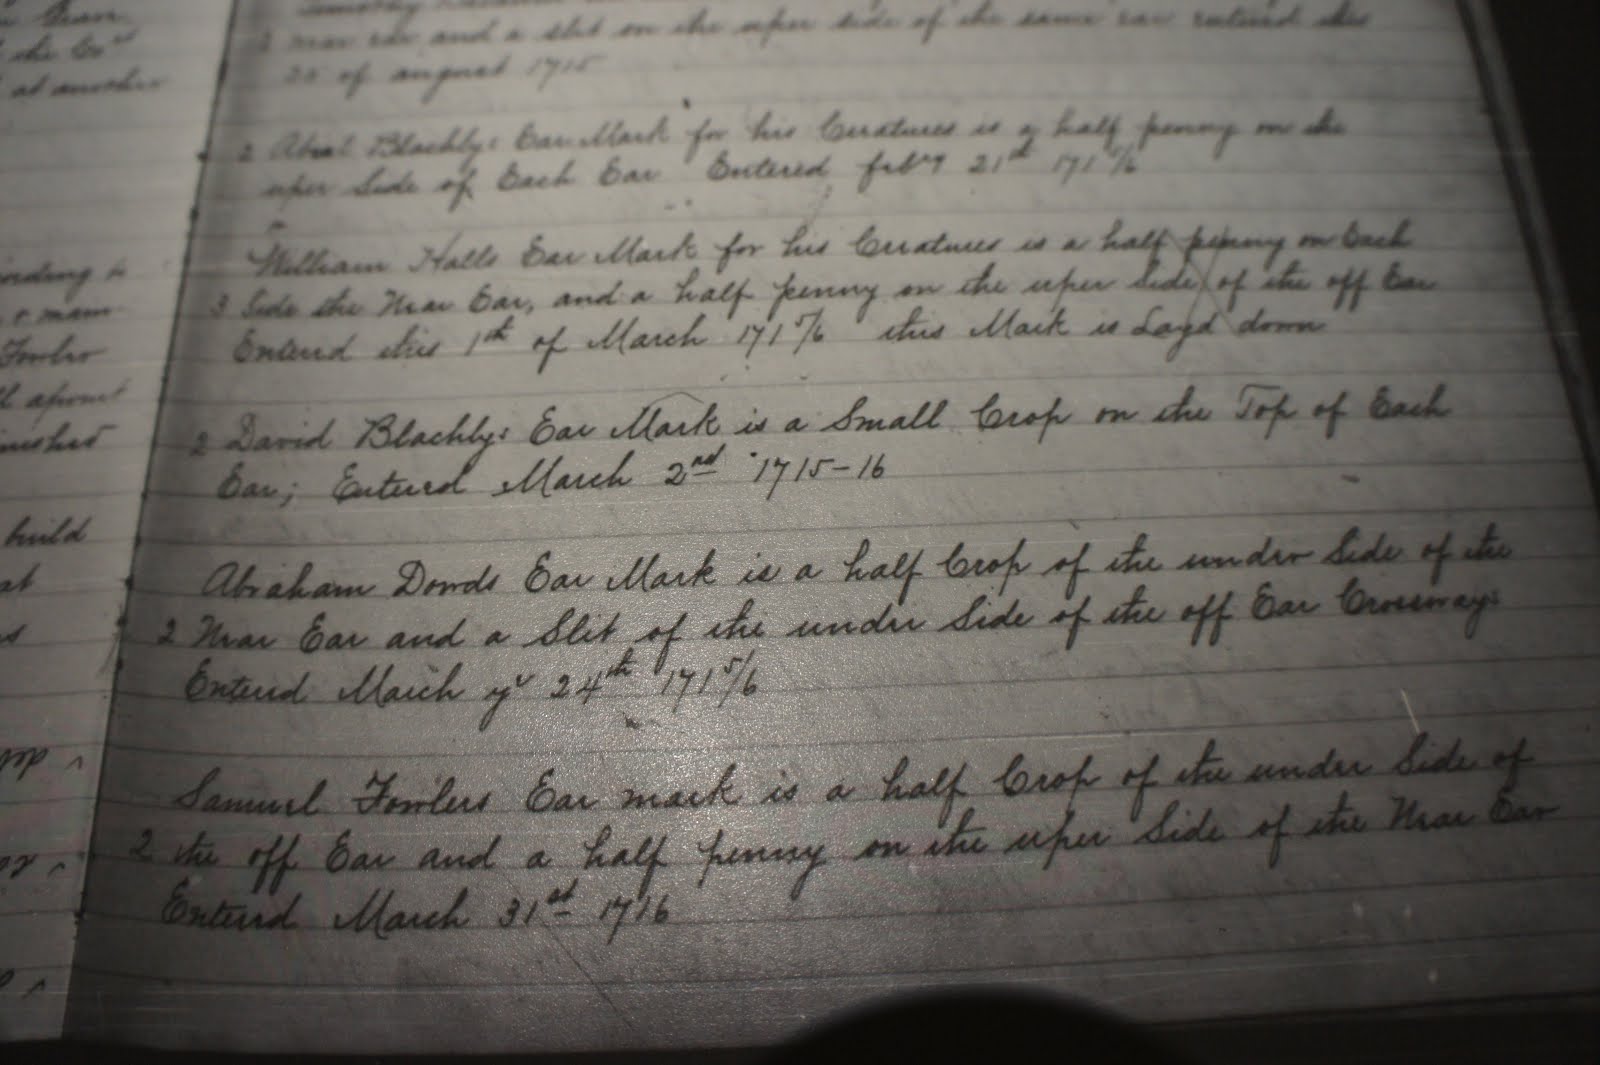 Gran
the Crt
at another
near ear and a slit on the uper side of the same ear entered this
20 of august 1715
2 Abial Blachlys Ear Mark for his Creatures is a half penny on the
uper Side of Each Ear Entered febry 21st 171 5/6
William Halls Ear Mark for his Creatures is a half penny on Each
3 Side the Near Ear, and a half penny on the uper Side of the off Ear
Enterd this 1th of March 171 5/6 this Mark is Layd down
2 David Blachlys Ear Mark is a Small Crop on the Top of Each
Ear; Enterred March 2nd 1715-16
build
at
Abraham Dowds Ear Mark is a half Crop of the under Side of the
2 Near Ear and a Slit of the under Side of the off Ear Crossways
Enterd March ye 24th 171 5/6
Samuel Fowlers Ear mark is a half Crop of the under Side of
2 the off Ear and a half penny on the uper Side of the Near Ear
Enterd March 31st 1716